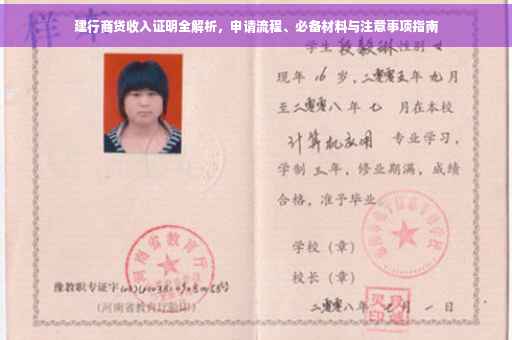 建行商贷收入证明全解析，申请流程、必备材料与注意事项指南
样本
学生段毅琳性别女
现年16岁，二零零五年九月
至二零零八年七月在本校
计算机应用 专业学习，
学制三年，修业期满，成绩
合格，准予毕业。
学校（章）
校长（章）
河南省教育厅
豫教职专证字
（河南省教育厅验印）
二零零八年七月一日